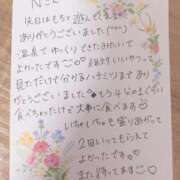 Nさん
先日はもちて遊んでくださり
ありがとうございました(^^)
温泉でゆっくりできたみたいで
よかったです。絶対いいやつって
見ただけで分かるハチミツまであり
がとうございました もう4分の1くらい
食べちゃったけど大事に食べます
いちゃいちゃも盛りあがって
2回いってもらえて
よかったです
また待ってます♡